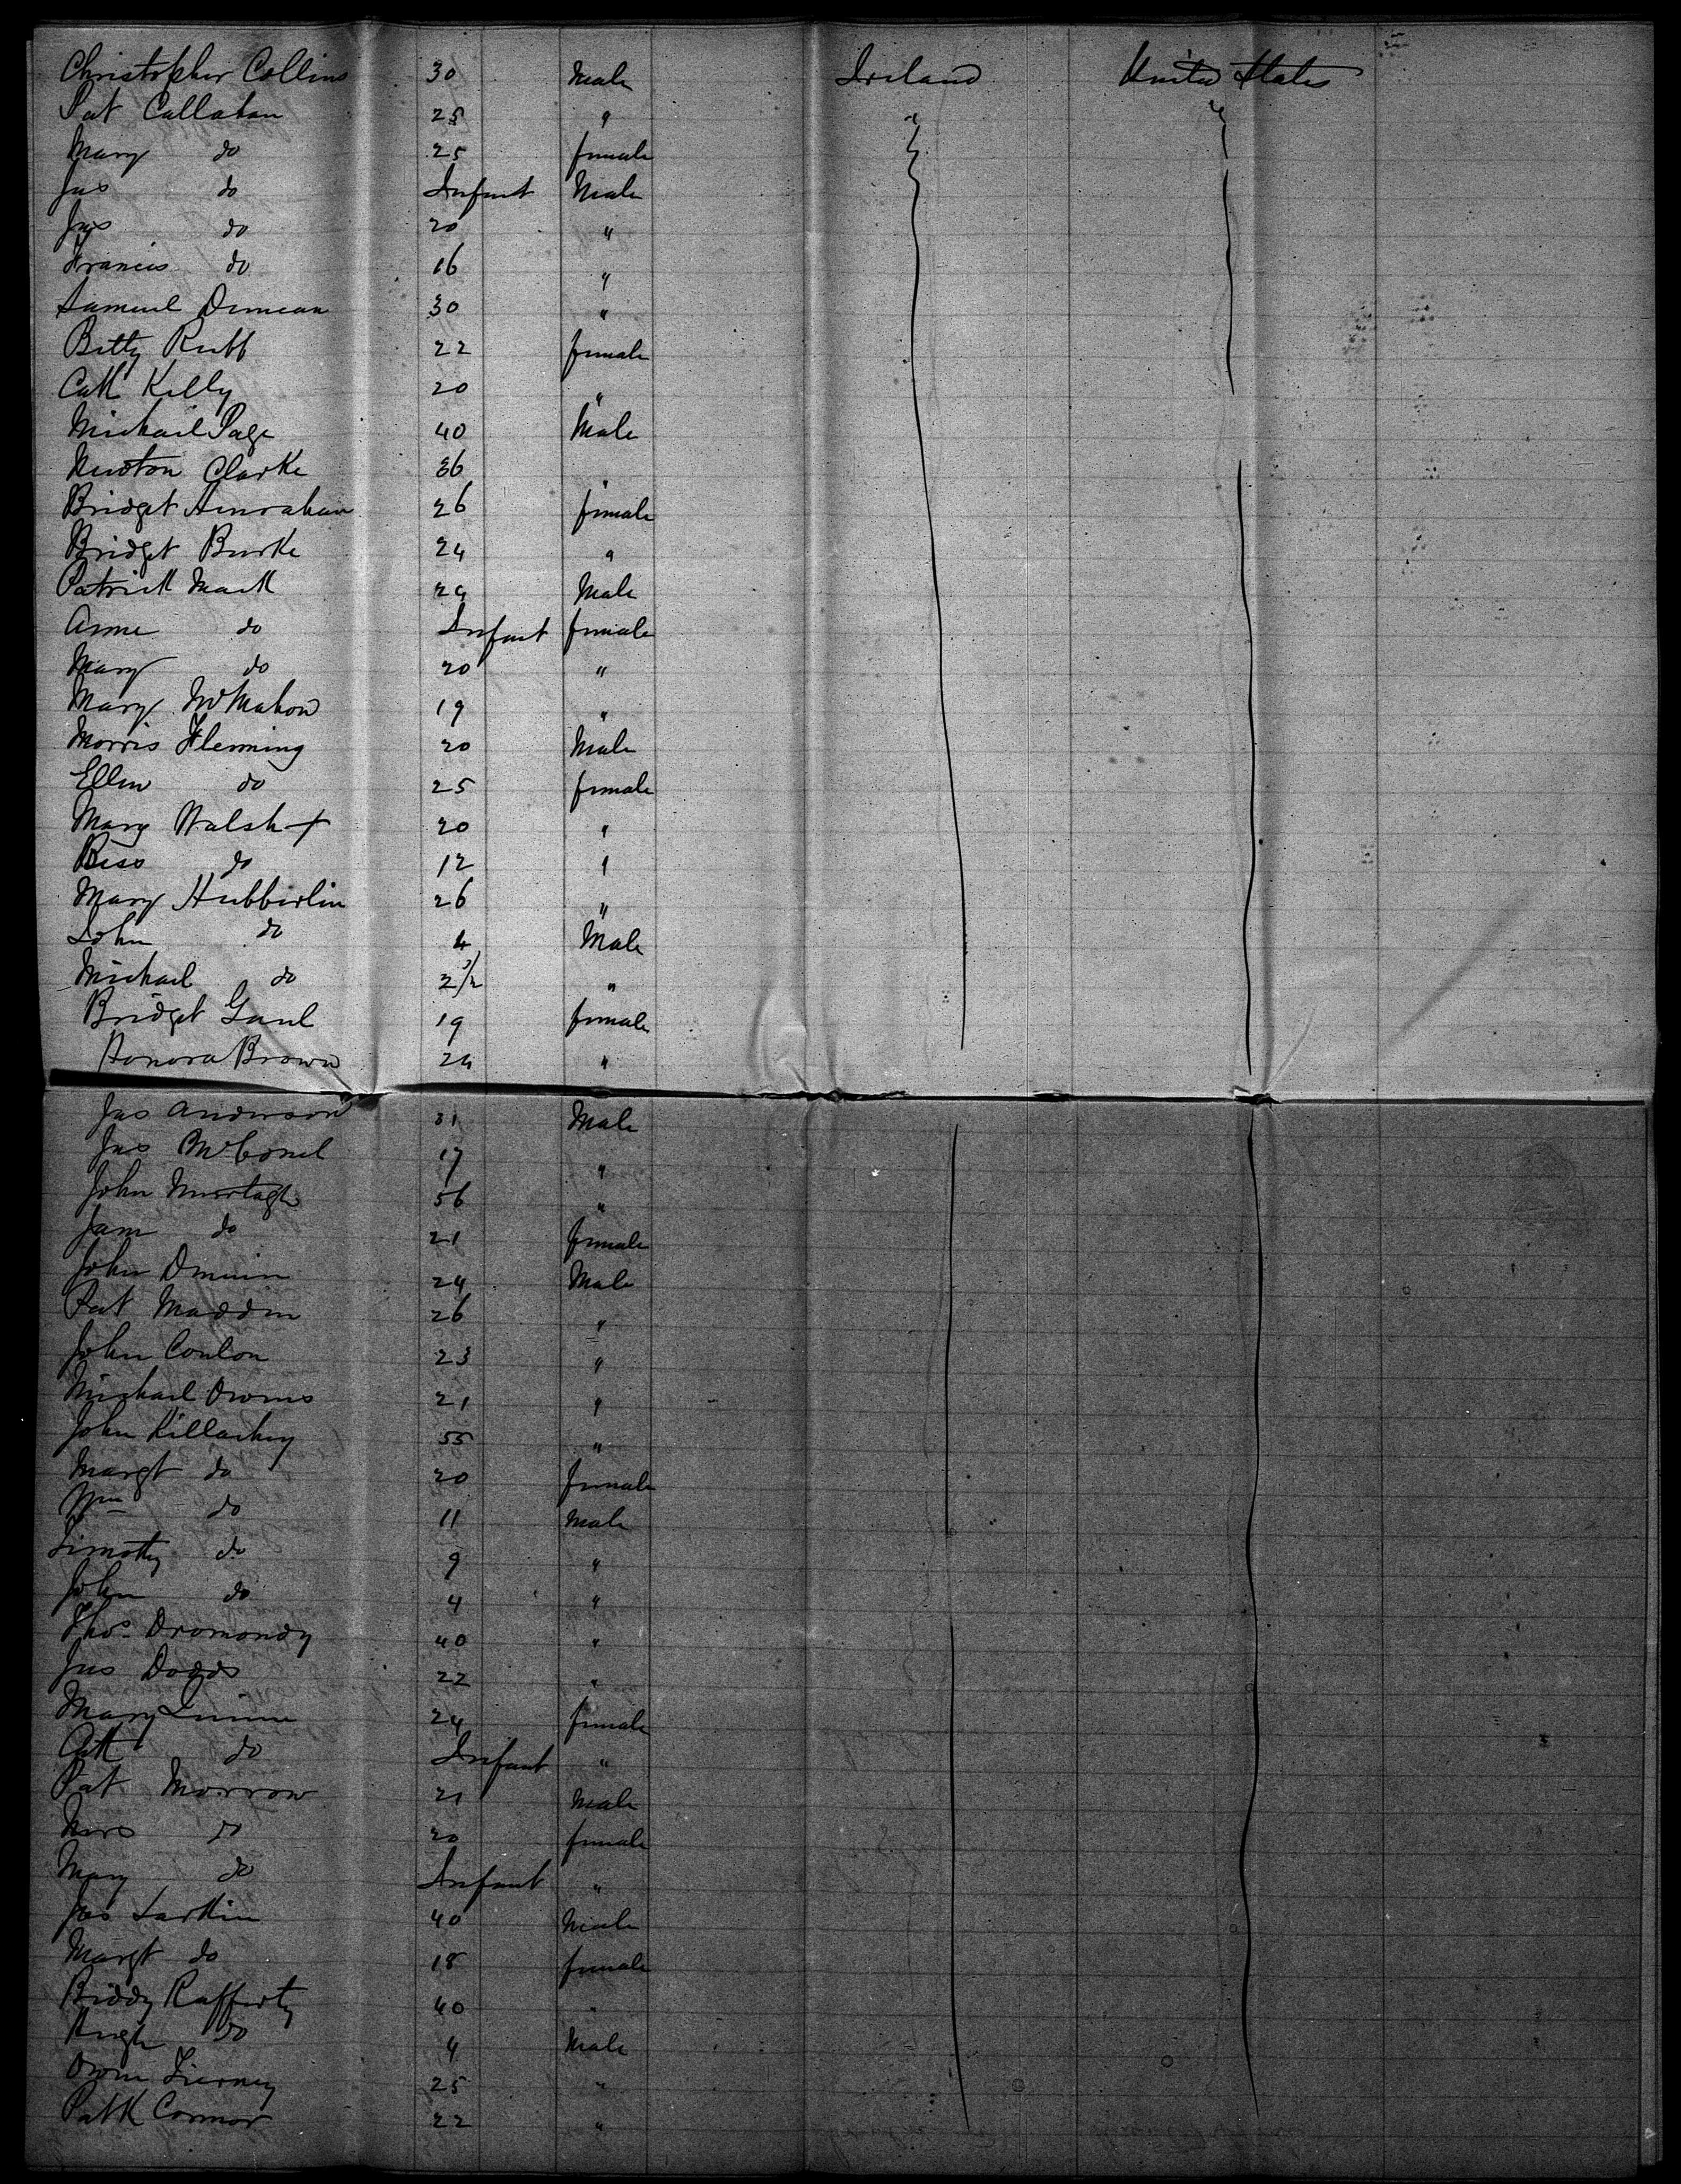 Christopher Collins 30 Male Ireland United States
Pat Callahan 25 "
Mary do 25 female
Jas do Infant Male
Jas do 20 "
Francis do 16 "
Samuel Duncan 30 "
Betty Rubb 22 female
Cath Kelly 20 "
Michael Page 40 Male
Newton Clarke 36 "
Bridget Hanrahan 26 female
Bridget Burke 24 "
Patrick Mack 24 Male
Anne do Infant female
Mary do 20 "
Mary McMahon 19 "
Morris Fleming 20 Male
Ellen do 25 female
Mary Walsh + 20 "
Bess do 12 "
Mary Hubberlin 26 "
John do 4 Male
Michael do 2 1/2 "
Bridget Gaul 19 female
Honora Brown 24 "
Jas Anderson 31 Male
Jas McConel 17 "
John Murtagh 56 "
Jane do 21 female
John 24 Male
Pat Madden 26 "
John Conlon 23 "
Michael Owens 21 "
John Killachey 55 "
Margt do 20 female
Wm do 11 Male
Timothy do 9 "
John do 4 "
Thos Dromondy 40 "
Jas Dodds 22 "
Mary Quinn 24 female
Cath do Infant "
Pat Morrow 21 Male
Mrs do 20 female
Mary do Infant "
Jas Larkin 40 Male
Margt do 18 female
Biddy Rafferty 40 "
Hugh do 4 Male
Owen Tierney 25 "
Patk Connor 22 "